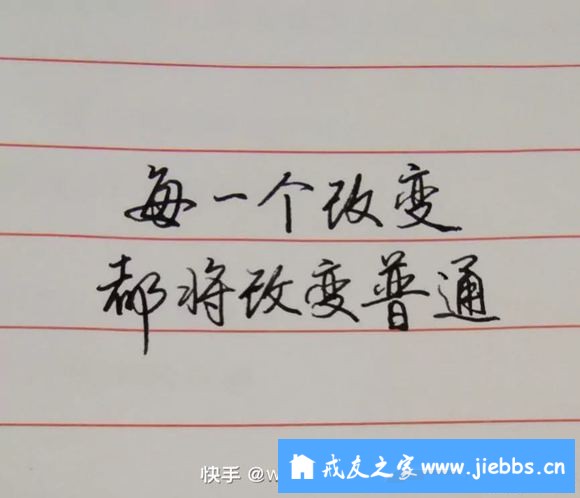 每一个改变
都将改变普通
快手 @w
戒友之家www.jiebbs.cn